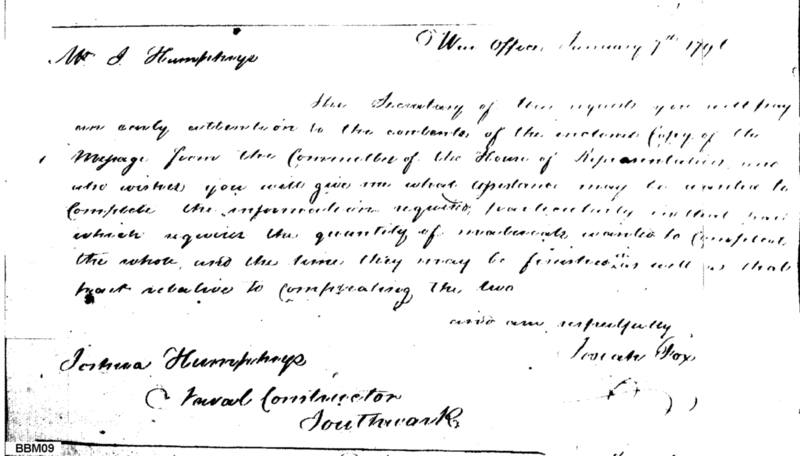 War Office January 7th 1796
Mr J. Humphrys
The Secretary of War requests you will pay
an early attention to the contents of the inclosed Copy of the
Message from the Committee of the House of Representatives, and
also wishes you will give me what assistance may be wanted to
Complete the information required, particularly in that part
which requires the quantity of materials wanted to Compleat
the whole, and the time they may be finished, as well as that
part relative to Compleating the two
and am respectfully
Josiah Fox
Joshua Humphrys
Naval Constructor
Southwark
BBM09